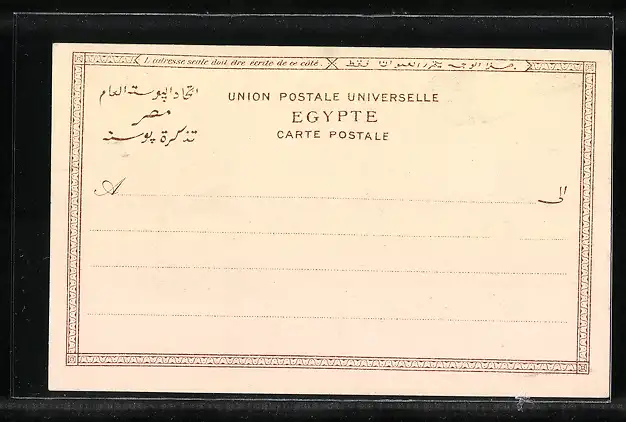 L'adresse seule doit être écrite de ce côté. هذا الوجه يتحرر العنوان فقط
اتحاد البوستة العام
مصر
تذكرة بوسته
UNION POSTALE UNIVERSELLE
EGYPTE
CARTE POSTALE
A الى